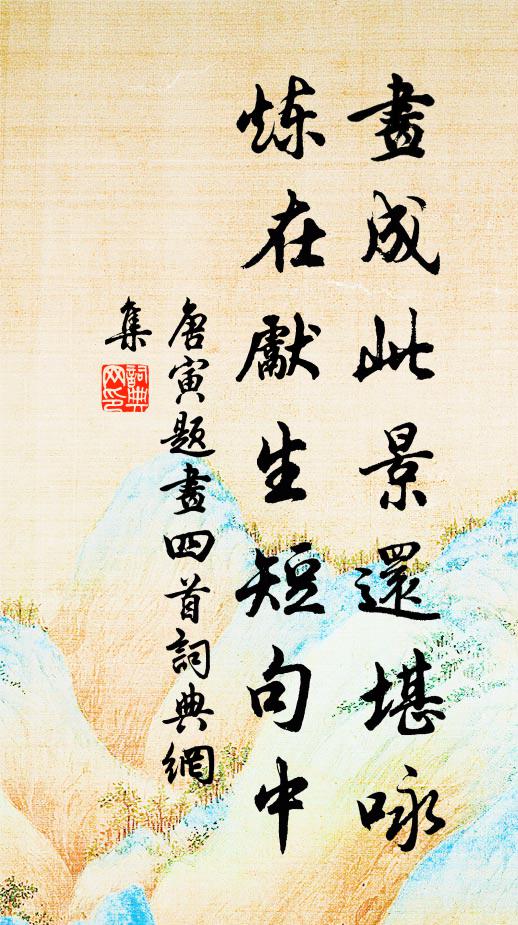 畫成此景還堪咏
炼在獻生短句中
唐寅題畫四首詞典網
集
詞典網印